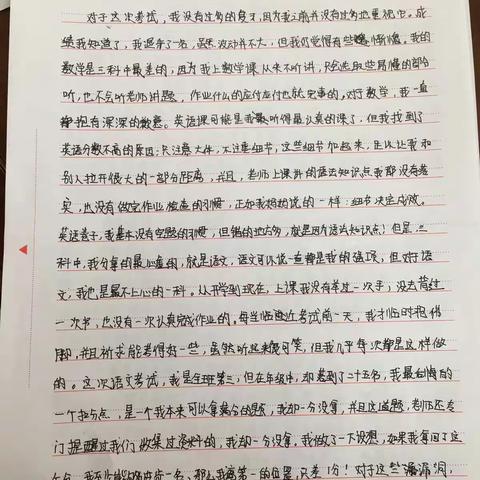 对于这次考试，我没有过多的复习，因为我之前并没有过多地重视它。成
绩我知道了，我退步了一名，虽然波动并不大，但我仍觉得有些懒惰。我的
数学是三科中最差的，因为我上数学课从来不听讲，只会选取些易懂的部分
听，也不会听老师讲题，作业什么的应付应付也就完事的。对于数学，我一直
抱有深深的歉意。英语课可能是我最听得最认真的课了，但我找到了
英语分数不高的原因：只注意大体，不注意细节，这些细节加起来，足以让我和
别人拉开很大的一部分距离，并且，老师上课讲的语法知识点我都没有落
实，也没有做完作业检查的习惯，正如我妈妈说的一样：细节决定成败。
英语卷子，我基本没有空题的习惯，但错的地方多，就是因为语法知识点！但是，三
科中，我分拿的最心虚的，就是语文，语文可以说一直都是我的强项，但对于语
文，我也是最不上心的一科。从开学到现在，上课我没有举过一次手，没去背过
一次书，也没有一次认真完成作业的。每当临近考试前一天，我才临时抱佛
脚，并且祈求能考得好一些，虽然听起来很可笑，但我几乎每次都是这样做
的。这次语文考试，我是全班第三，但在年级中，却考到了二十五名，我最后悔的
一个扣分点，是一个我本来可以拿满分的题，我却一分没拿，并且这道题，老师还专
门提醒过我们收集过资料的，我却一分没拿，我做了一下设想，如果我拿回了这
那么我离第一的位置，只差1分！对于这些漏洞，